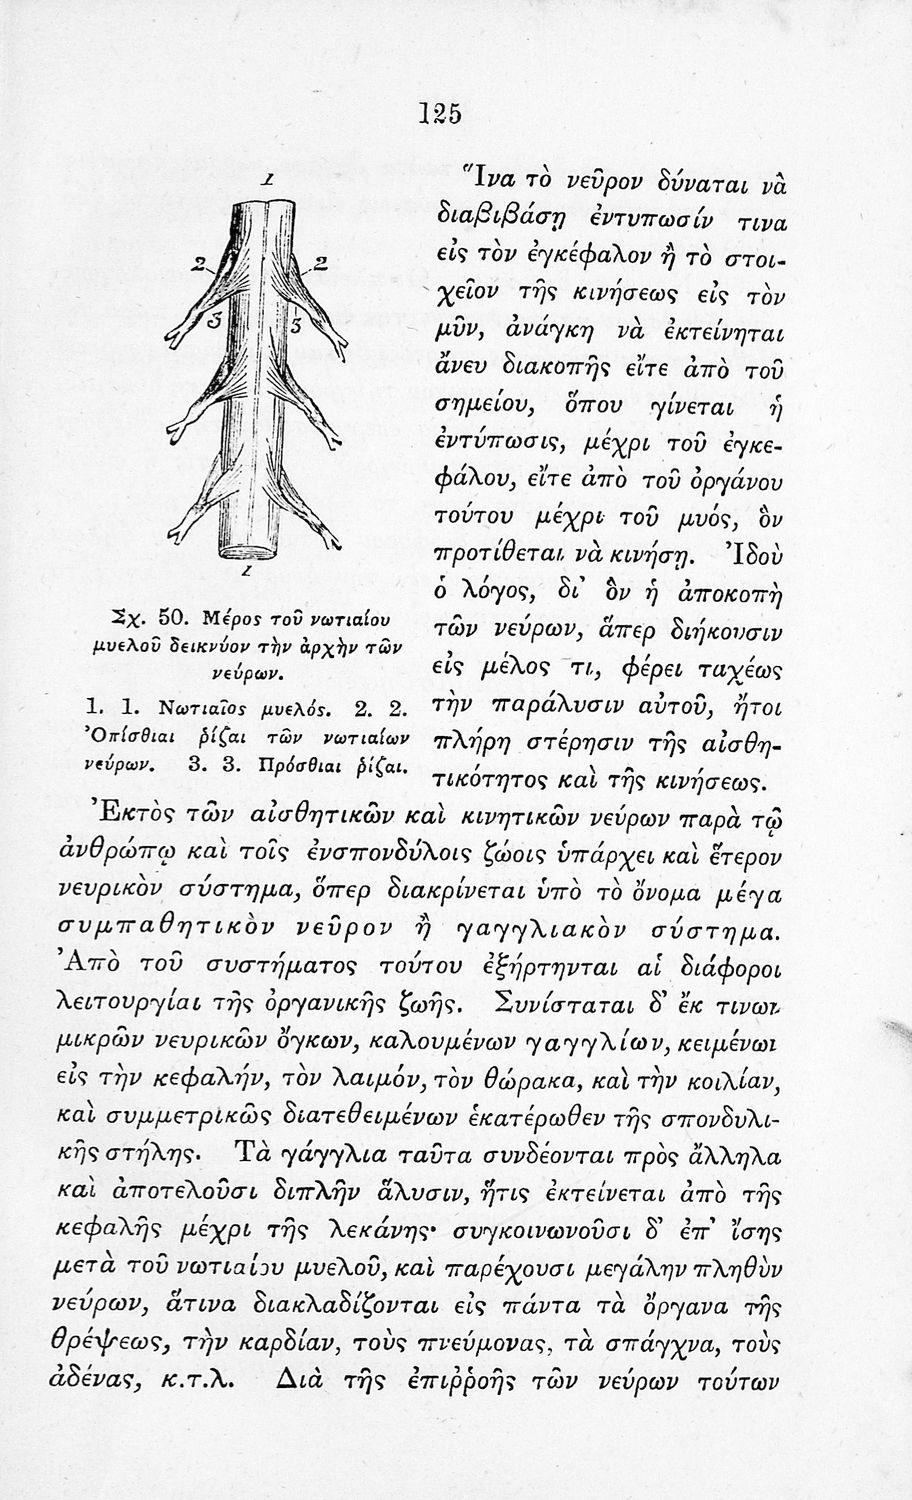 125
1
2
2
3
3
1
Σχ. 50. Μέρος τοῦ νωτιαίου
μυελοῦ δεικνύον τὴν ἀρχὴν τῶν
νεύρων.
1. 1. Νωτιαῖος μυελός. 2. 2.
Ὀπίσθιαι ῥίζαι τῶν νωτιαίων
νεύρων. 3. 3. Πρόσθιαι ῥίζαι.
Ἵνα τὸ νεῦρον δύναται νὰ
διαβιβάσῃ ἐντυπωσίν τινα
εἰς τὸν ἐγκέφαλον ἢ τὸ στοι-
χεῖον τῆς κινήσεως εἰς τὸν
μῦν, ἀνάγκη νὰ ἐκτείνηται
ἄνευ διακοπῆς εἴτε ἀπὸ τοῦ
σημείου, ὅπου γίνεται ἡ
ἐντύπωσις, μέχρι τοῦ ἐγκε-
φάλου, εἴτε ἀπὸ τοῦ ὀργάνου
τούτου μέχρι τοῦ μυός, ὃν
προτίθεται νὰ κινήσῃ. Ἰδοὺ
ὁ λόγος, δι’ ὃν ἡ ἀποκοπὴ
τῶν νεύρων, ἅπερ διήκουσιν
εἰς μέλος τι, φέρει ταχέως
τὴν παράλυσιν αὐτοῦ, ἤτοι
πλήρη στέρησιν τῆς αἰσθη-
τικότητος καὶ τῆς κινήσεως.
Ἐκτὸς τῶν αἰσθητικῶν καὶ κινητικῶν νεύρων παρὰ τῷ
ἀνθρώπῳ καὶ τοῖς ἐνσπονδύλοις ζώοις ὑπάρχει καὶ ἕτερον
νευρικὸν σύστημα, ὅπερ διακρίνεται ὑπὸ τὸ ὄνομα μέγα
συμπαθητικὸν νεῦρον ἢ γαγγλιακὸν σύστημα.
Ἀπὸ τοῦ συστήματος τούτου ἐξήρτηνται αἱ διάφοροι
λειτουργίαι τῆς ὀργανικῆς ζωῆς. Συνίσταται δ’ ἔκ τινων
μικρῶν νευρικῶν ὄγκων, καλουμένων γαγγλίων, κειμένων
εἰς τὴν κεφαλήν, τὸν λαιμόν, τὸν θώρακα, καὶ τὴν κοιλίαν,
καὶ συμμετρικῶς διατεθειμένων ἑκατέρωθεν τῆς σπονδυλι-
κῆς στήλης. Τὰ γάγγλια ταῦτα συνδέονται πρὸς ἄλληλα
καὶ ἀποτελοῦσι διπλῆν ἅλυσιν, ἥτις ἐκτείνεται ἀπὸ τῆς
κεφαλῆς μέχρι τῆς λεκάνης· συγκοινωνοῦσι δ’ ἐπ’ ἴσης
μετὰ τοῦ νωτιαίου μυελοῦ, καὶ παρέχουσι μεγάλην πληθὺν
νεύρων, ἅτινα διακλαδίζονται εἰς πάντα τὰ ὄργανα τῆς
θρέψεως, τὴν καρδίαν, τοὺς πνεύμονας, τὰ σπάγχνα, τοὺς
ἀδένας, κ.τ.λ. Διὰ τῆς ἐπιῤῥοῆς τῶν νεύρων τούτων